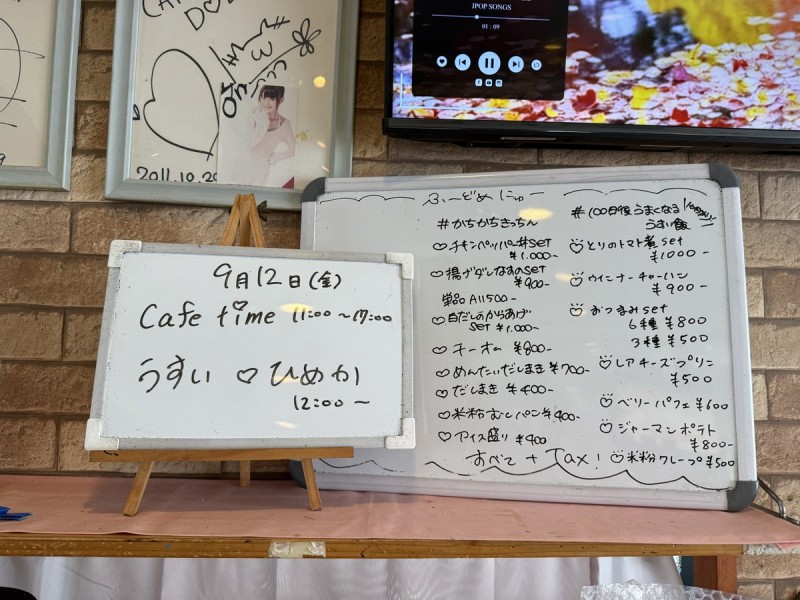 JPOP SONGS
01:09
2011.10.29
9月12日(金)
Cafe time 11:00〜17:00
うすい♡ひめか
12:00〜
ふーどめにゅー
#かちかちきっちん
♡チキンペッパー丼SET
¥1.000-
♡揚げダレなすのSET
¥900-
単品 All500-
♡白だしのからあげ
SET ¥1.000-
♡チーオム ¥800-
♡めんたいだしまき ¥700-
♡だしまき ¥400-
♡米粉むしパン ¥400-
♡アイス盛り ¥400
#100日後うまくなる
うすい飯
とりのトマト煮set
¥1000-
ウインナーチャーハン
¥900-
おつまみset
6種 ¥800
3種 ¥500
レアチーズプリン
¥500
ベリーパフェ ¥600
ジャーマンポテト
¥800-
米粉クレープ ¥500
すべて + Tax!